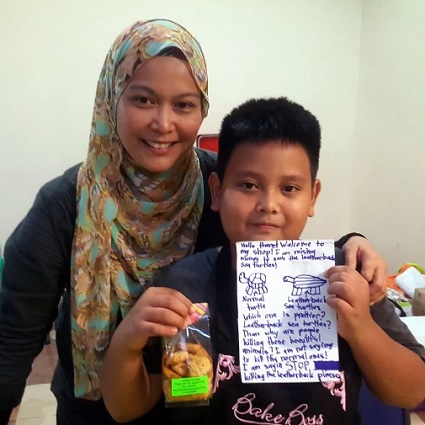 Hello there! Welcome to
my shop! I am raising
money to save the leatherback
sea turtles!
Normal
turtle
Leatherback
sea turtles
Which one is prettier?
Leatherback sea turtles?
Then why are people
killing these beautiful
animals? I am not saying
to kill the normal ones!
I am sayin STOP
killing the leatherback please
Bake Boss